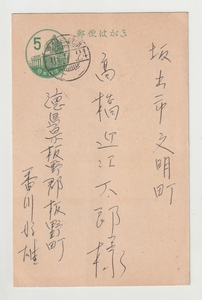 郵便はがき
5
坂出市文明町
高橋近江太郎様
徳島県板野郡板野町
香川好雄